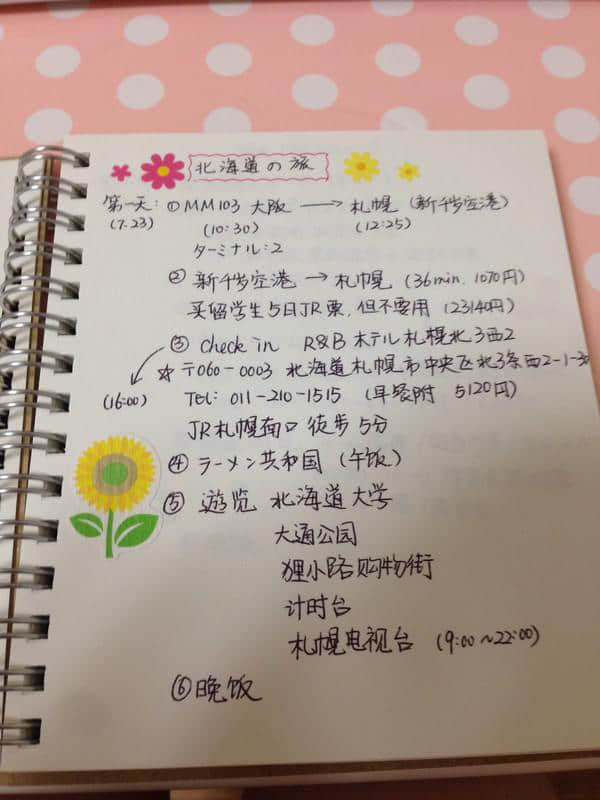 北海道の旅
第一天: ① MM103 大阪 → 札幌 (新千岁空港)
(7.23) (10:30) (12:25)
ターミナル:2
② 新千岁空港 → 札幌 (36min, 1070円)
买留学生5日JR票, 但不要用 (23140円)
③ check in R&B ホテル札幌北3西2
☆ 〒060-0003 北海道札幌市中央区北3条西2-1-30
(16:00) Tel: 011-210-1515 (早餐附 5120円)
JR札幌南口 徒步5分
④ ラーメン共和国 (午饭)
⑤ 遊览 北海道大学
大通公园
狸小路购物街
计时台
札幌电视台 (9:00~22:00)
⑥ 晚饭